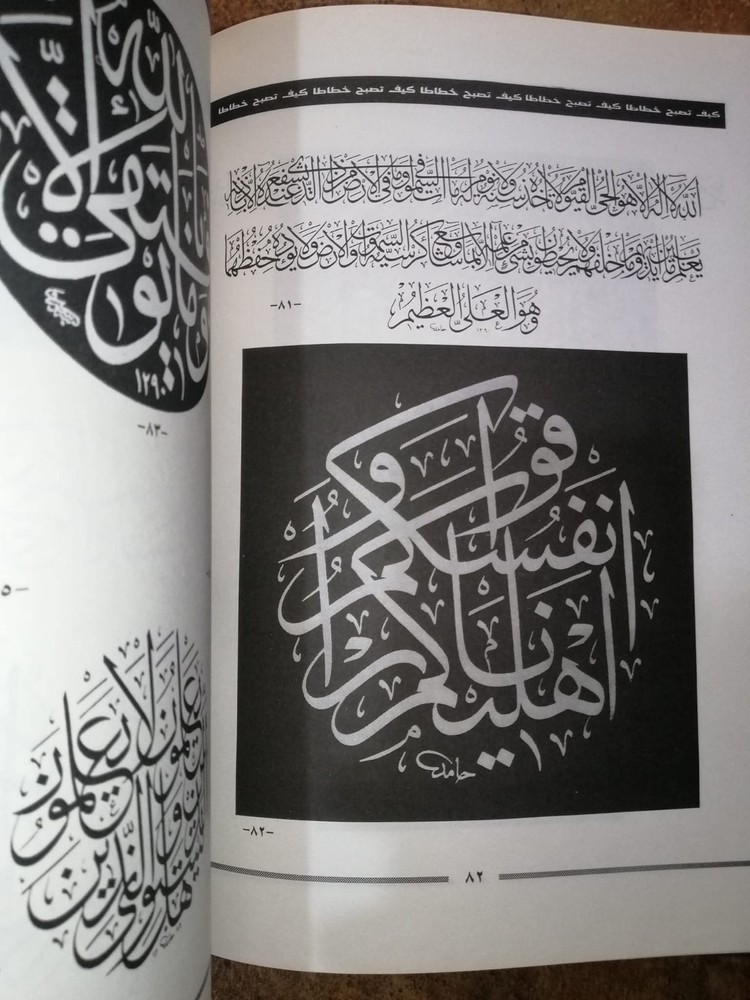 كيف تصبح خطاطا كيف تصبح خطاطا كيف تصبح خطاطا كيف تصبح خطاطا كيف تصبح خطاطا
الله لا إله إلا هو الحي القيوم لا تأخذه سنة ولا نوم له ما في السموات وما في الأرض من ذا الذي يشفع عنده إلا بإذنه
يعلم ما بين أيديهم وما خلفهم ولا يحيطون بشيء من علمه إلا بما شاء وسع كرسيه السموات والأرض ولا يؤده حفظهما
وهو العلي العظيم
حامد
-٨١-
قوا
أنفسكم و
أهليكم نارا
حامد
-٨٢-
٨٢
وما توفيقي إلا
بالله
١٢٩٠
-٨٣-
هل يستوي الذين يعلمون والذين لا يعلمون